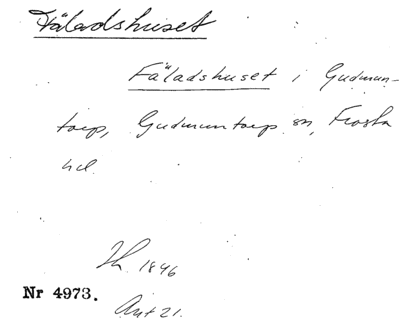 Fäladshuset
Fäladshuset i Gudmun-
torp, Gudmuntorp sn, Frosta
hd.
Th. 1846
Nr 4973.
Ant 21.